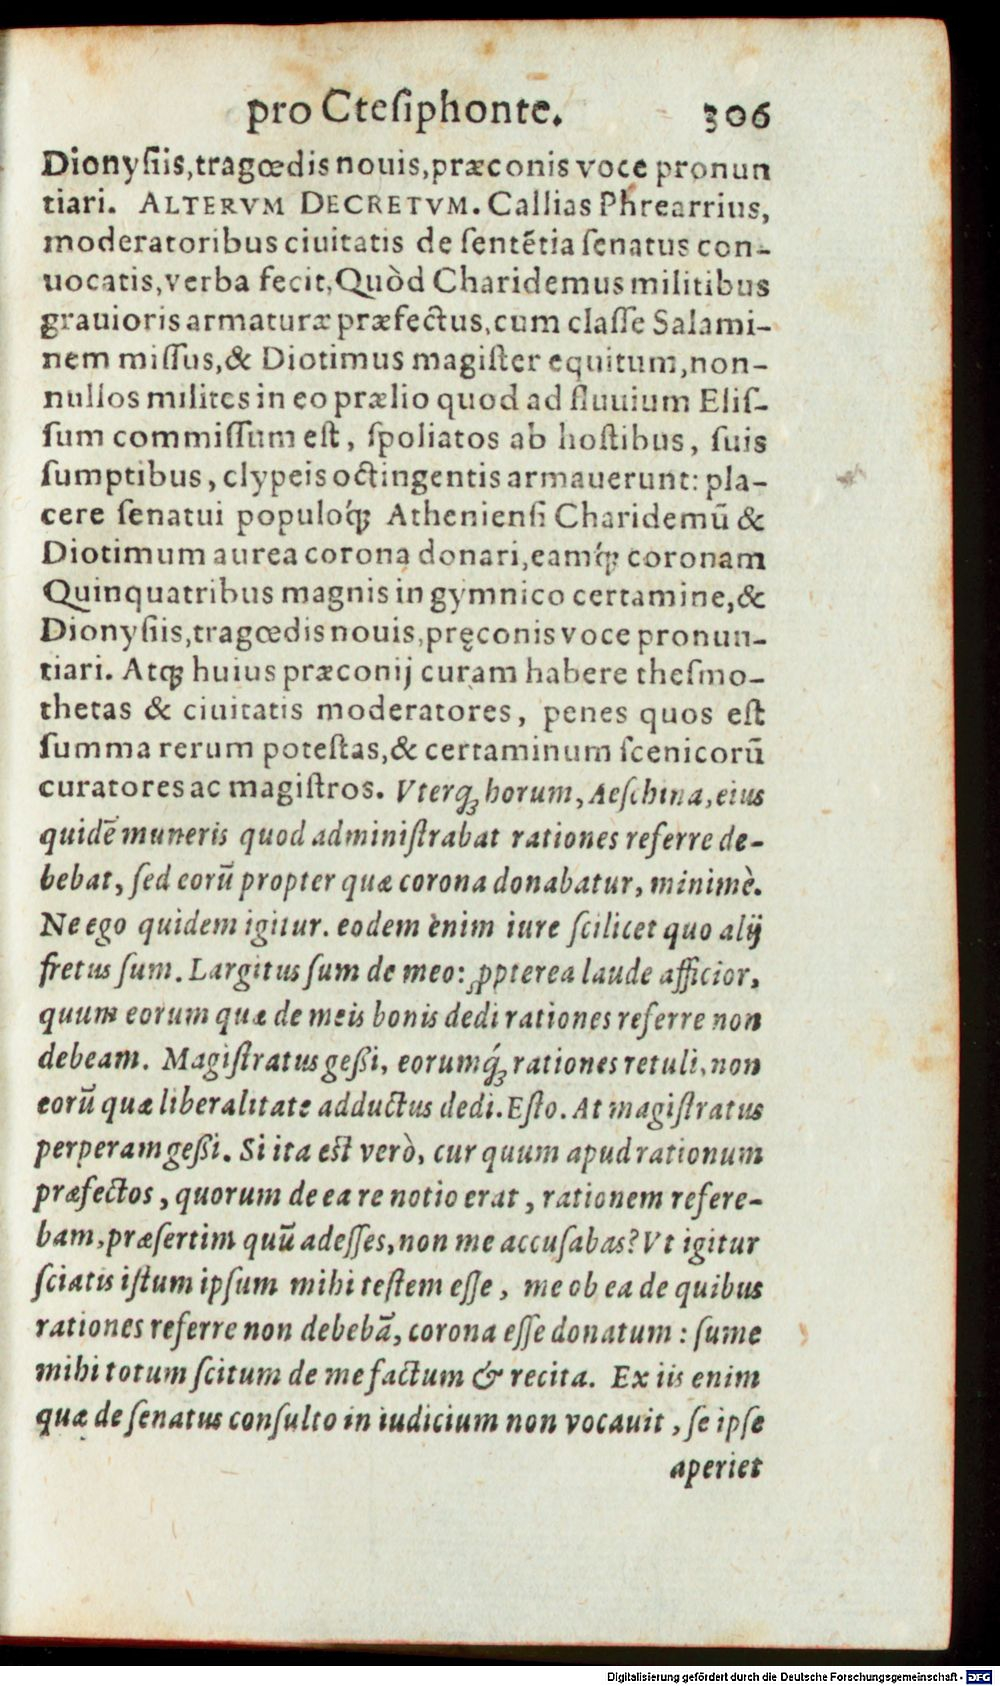 pro Cteſiphonte. 306
Dionyſiis,tragœdis nouis,præconis voce pronun
tiari. ALTERVM DECRETVM. Callias Phrearrius,
moderatoribus ciuitatis de ſentẽtia ſenatus con-
uocatis,verba fecit,Quòd Charidemus militibus
grauioris armaturæ præfectus,cum claſſe Salami-
nem miſſus,& Diotimus magiſter equitum,non-
nullos milites in eo prælio quod ad fluuium Eliſ-
ſum commiſſum eſt, ſpoliatos ab hoſtibus, ſuis
ſumptibus, clypeis octingentis armauerunt: pla-
cere ſenatui populoq́; Athenienſi Charidemũ &
Diotimum aurea corona donari,eamq́; coronam
Quinquatribus magnis in gymnico certamine,&
Dionyſiis,tragœdis nouis,pręconis voce pronun-
tiari. Atq; huius præconij curam habere theſmo-
thetas & ciuitatis moderatores, penes quos eſt
ſumma rerum poteſtas,& certaminum ſcenicorũ
curatores ac magiſtros. Vterq; horum, Aeſchina, eius
quidẽ muneris quod adminiſtrabat rationes referre de-
bebat, ſed eorũ propter quæ corona donabatur, minimè.
Ne ego quidem igitur. eodem enim iure ſcilicet quo alij
fretus ſum. Largitus ſum de meo: ꝓpterea laude afficior,
quum eorum quæ de meis bonis dedi rationes referre non
debeam. Magiſtratus geßi, eorumq́; rationes retuli, non
eorũ quæ liberalitate adductus dedi. Eſto. At magiſtratus
perperam geßi. Si ita eſt verò, cur quum apud rationum
præfectos, quorum de ea re notio erat, rationem refere-
bam, præſertim quũ adeſſes, non me accuſabas? Vt igitur
ſciatis iſtum ipſum mihi teſtem eſſe, me ob ea de quibus
rationes referre non debebã, corona eſſe donatum: ſume
mihi totum ſcitum de me factum & recita. Ex iis enim
quæ de ſenatus conſulto in iudicium non vocauit, ſe ipſe
aperiet
Digitalisierung gefördert durch die Deutsche Forschungsgemeinschaft - DFG